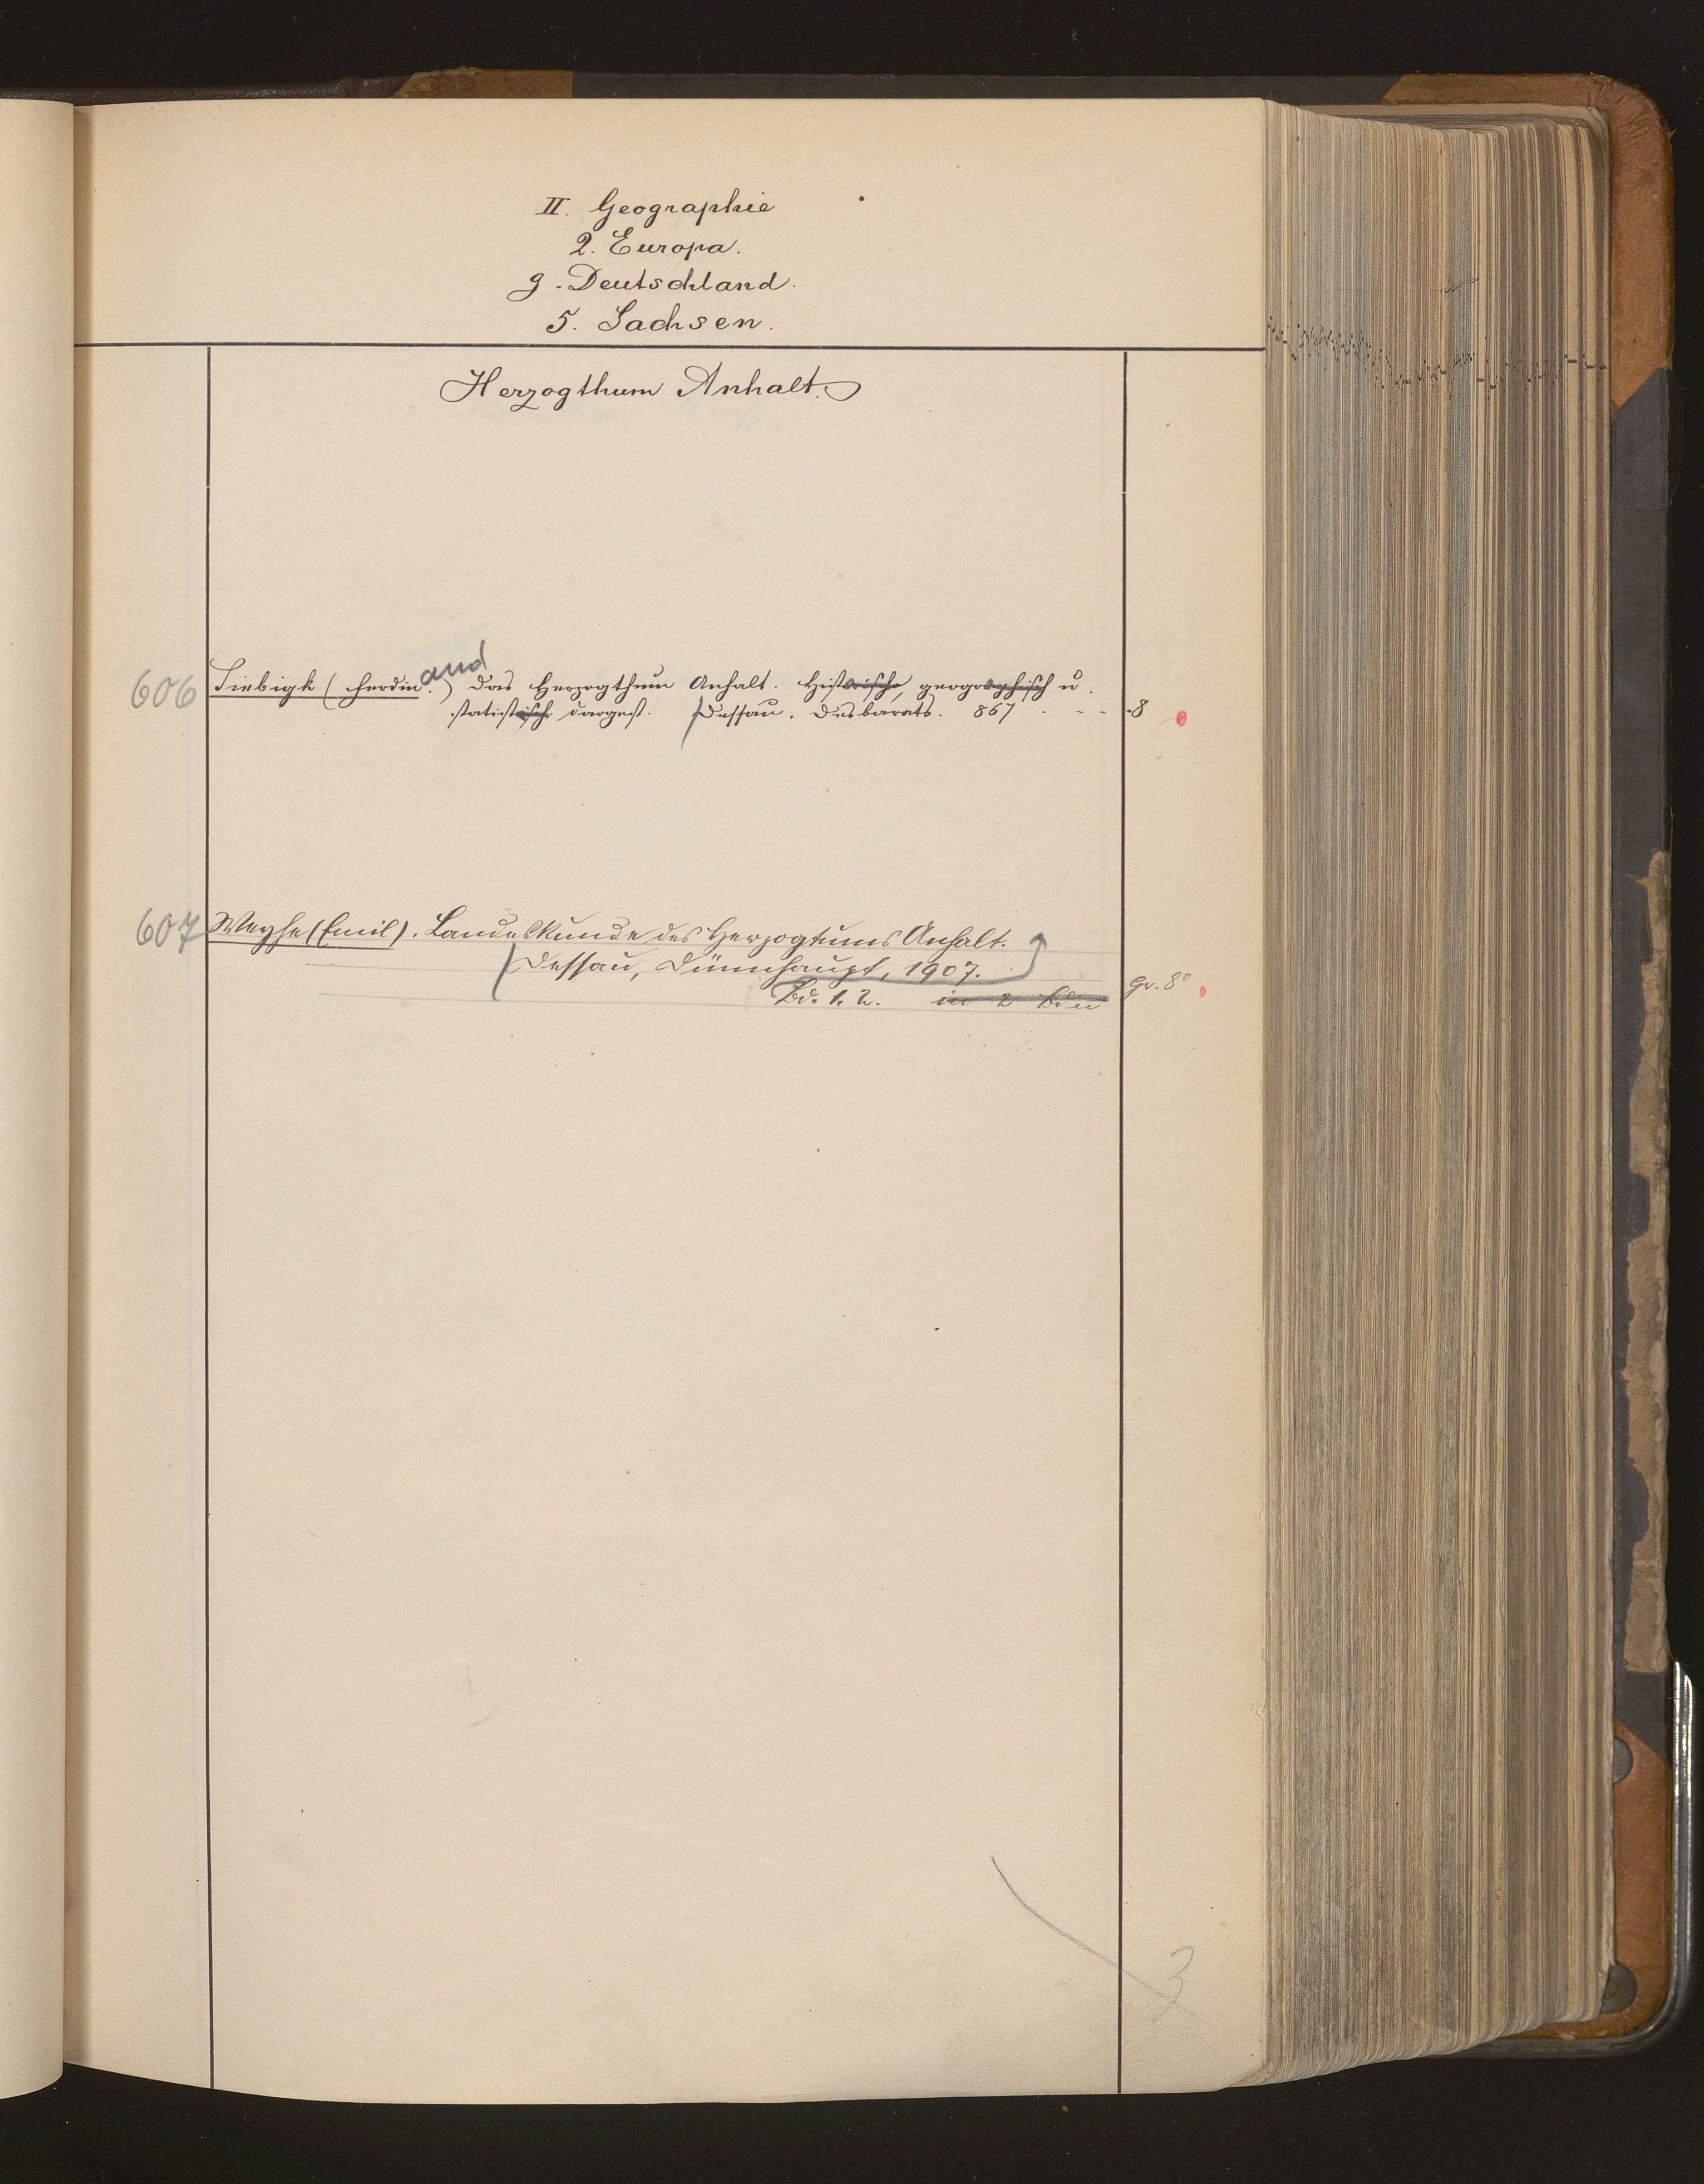 II. Geographie
2. Europa.
g. Deutschland.
5. Sachsen.
Herzogthum Anhalt.
and
606 Siebigk (Ferdin.) Das Herzogthum Anhalt. Historische, geographisch u.
statistisch dargest. Dessau. Desbarats. 867 - - - 8
607 Weyhe (Emil). Landeskunde des Herzogtums Anhalt.
Dessau, Dünnhaupt, 1907.
Bd. 1. 2. in 2 Bdn gr. 8°
3